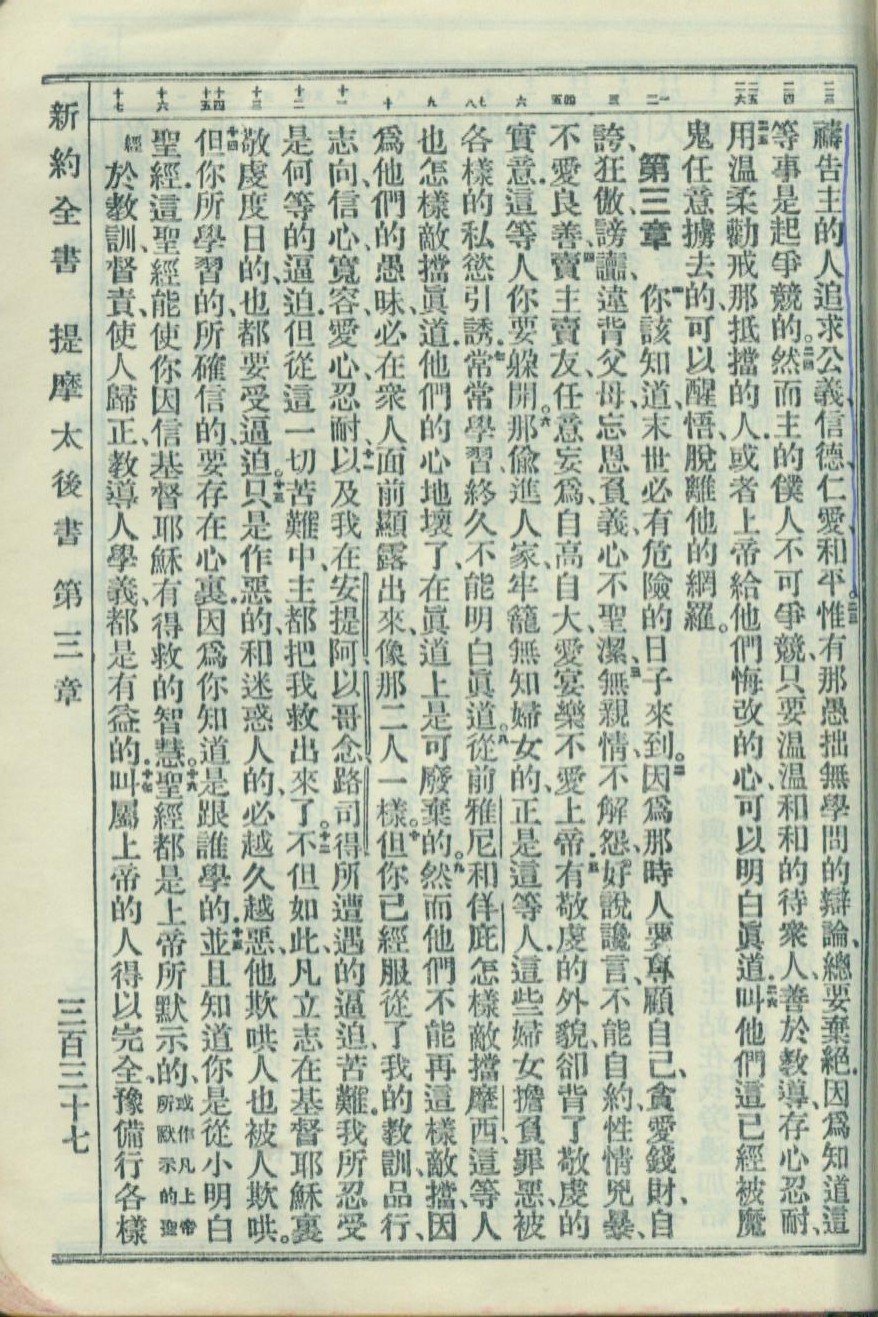 禱告主的人追求公義、信德、仁愛、和平。二三惟有那愚拙無學問的辯論、總要棄絕、因爲知道這
等事是起爭競的。二四然而主的僕人不可爭競、只要溫溫和和的待衆人、善於教導、存心忍耐、
二五用溫柔勸戒那抵擋的人、或者上帝給他們悔改的心、可以明白眞道、二六叫他們這已經被魔
鬼任意擄去的、可以醒悟、脫離他的網羅。
第三章 一你該知道、末世必有危險的日子來到。二因爲那時人要專顧自己、貪愛錢財、自
誇、狂傲、謗讟、違背父母、忘恩負義、心不聖潔、三無親情、不解怨、好說讒言、不能自約、性情兇暴、
不愛良善、四賣主賣友、任意妄爲、自高自大、愛宴樂、不愛上帝、五有敬虔的外貌、卻背了敬虔的
實意、這等人你要躱開。六那偸進人家、牢籠無知婦女的、正是這等人、這些婦女擔負罪惡、被
各樣的私慾引誘、七常常學習、終久不能明白眞道。八從前雅尼和佯庇怎樣敵擋摩西、這等人
也怎樣敵擋眞道、他們的心地壞了、在眞道上是可廢棄的。九然而他們不能再這樣敵擋、因
爲他們的愚昧、必在衆人面前顯露出來、像那二人一樣。十但你已經服從了我的教訓、品行、
志向、信心、寬容、愛心、忍耐、十一以及我在安提阿、以哥念、路司得、所遭遇的逼迫苦難、我所忍受
是何等的逼迫、但從這一切苦難中、主都把我救出來了。十二不但如此、凡立志在基督耶穌裏
敬虔度日的、也都要受逼迫。十三只是作惡的、和迷惑人的、必越久越惡、他欺哄人、也被人欺哄。
十四但你所學習的、所確信的、要存在心裏、因爲你知道是跟誰學的、十五並且知道你是從小明白
聖經、這聖經能使你因信基督耶穌、有得救的智慧。十六聖經都是上帝所默示的、或作凡上帝所默示的聖
經於教訓、督責、使人歸正、教導人學義、都是有益的、十七叫屬上帝的人得以完全、豫備行各樣
新約全書 提摩太後書 第三章 三百三十七
二三
二四
二五 二六
一 二
三
四 五
六
七 八
九
十
十一
十二
十三
十四 十五
十六
十七